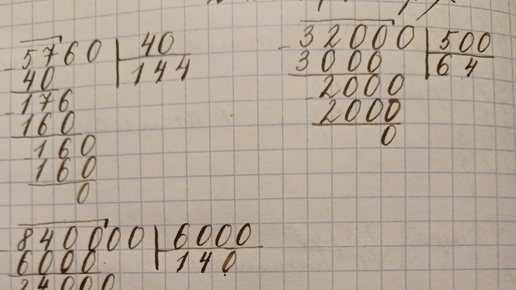 5760 | 40
40 | 144
176
160
160
160
0
32000 | 500
3000 | 64
2000
2000
0
840000 | 6000
6000 | 140
24000